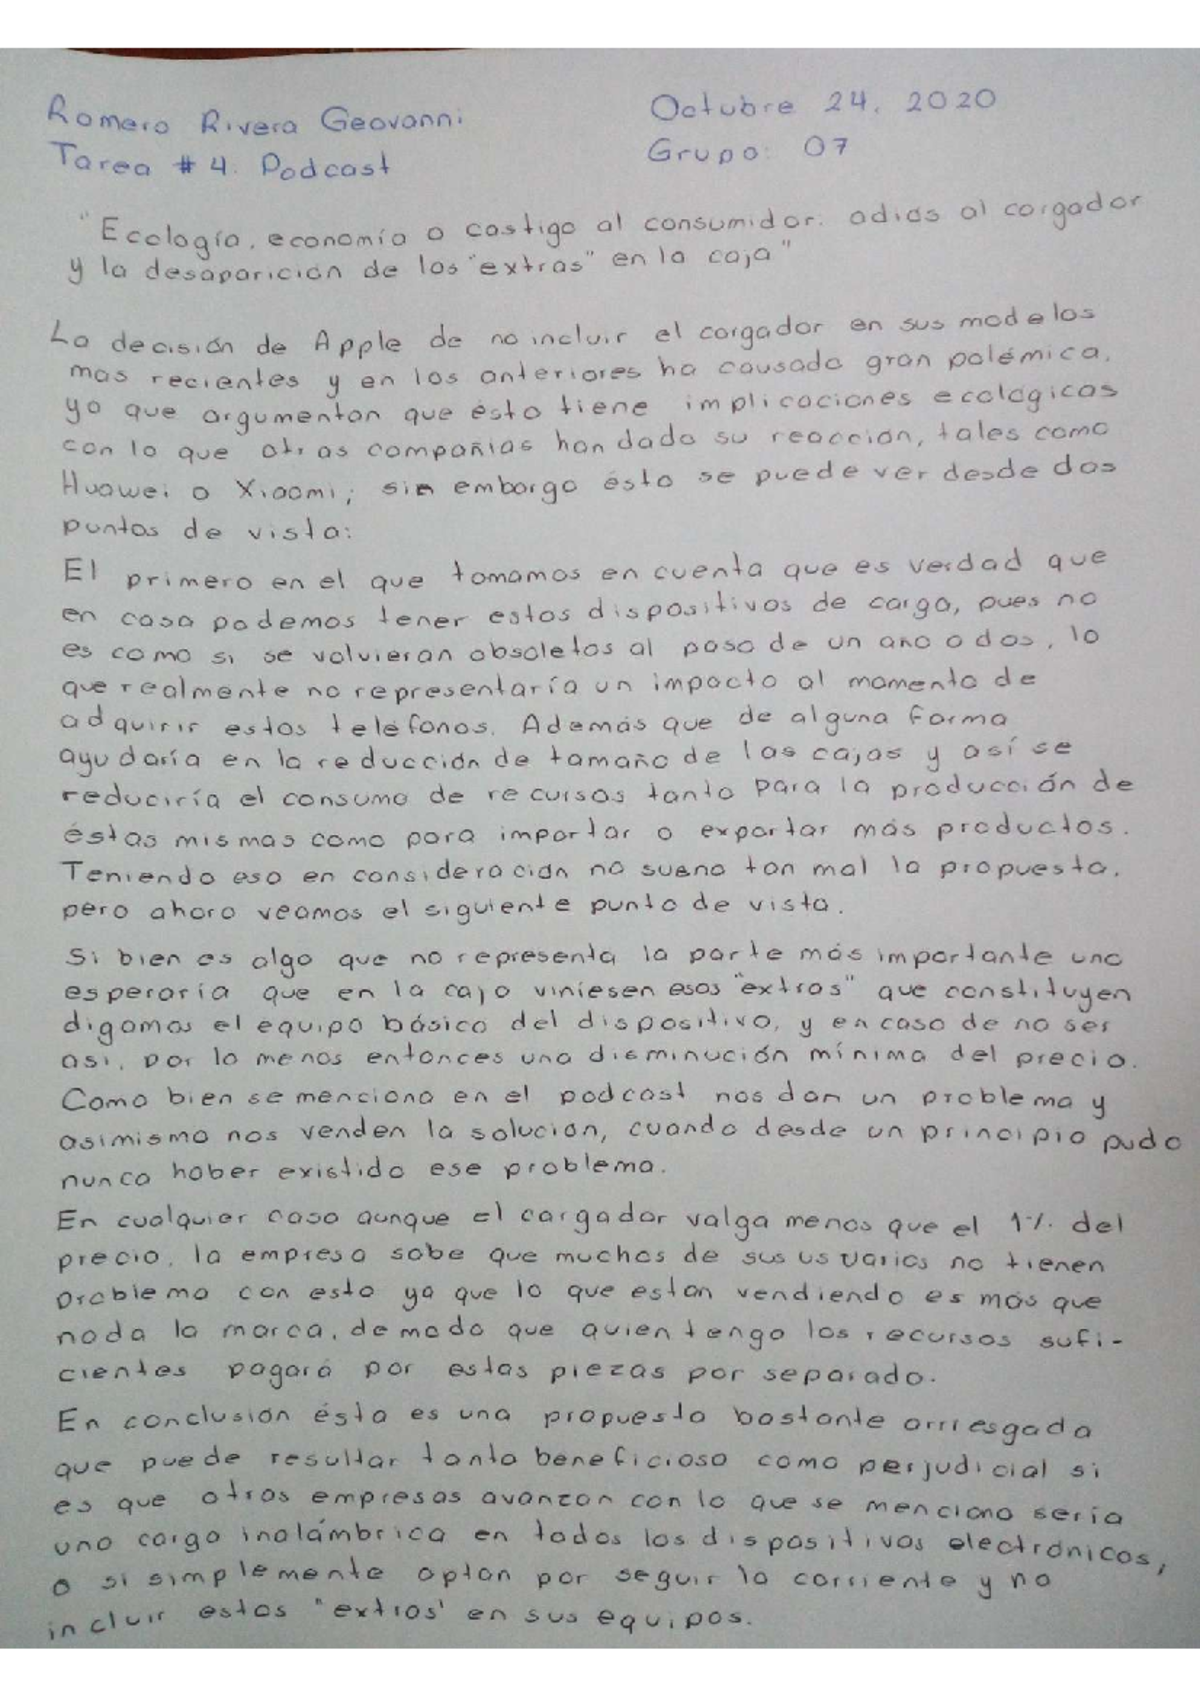 Romero Rivera Geovanni
Octubre 24, 2020
Tarea # 4. Podcast
Grupo: 07
"Ecología, economía o castigo al consumidor: adiós al cargador
y la desaparición de los "extras" en la caja"
La decisión de Apple de no incluir el cargador en sus modelos
mas recientes y en los anteriores ha causado gran polémica,
ya que argumentan que ésto tiene implicaciones ecológicas
con lo que otras compañias han dado su reacción, tales como
Huawei o Xiaomi; sin embargo ésto se puede ver desde dos
puntos de vista:
El primero en el que tomamos en cuenta que es verdad que
en casa podemos tener estos dispositivos de carga, pues no
es como si se volvieran obsoletos al paso de un año o dos, lo
que realmente no representaría un impacto al momento de
adquirir estos teléfonos. Además que de alguna forma
ayudaría en la reducción de tamaño de las cajas y así se
reduciría el consumo de recursos tanto para la producción de
éstas mismas como para importar o exportar más productos.
Teniendo eso en consideración no suena tan mal la propuesta,
pero ahora veamos el siguiente punto de vista.
Si bien es algo que no representa la parte más importante uno
esperaría que en la caja viniesen esos "extras" que constituyen
digamos el equipo básico del dispositivo, y en caso de no ser
asi, por lo menos entonces una disminución mínima del precio.
Como bien se menciona en el podcast nos dan un problema y
asimismo nos venden la solución, cuando desde un principio pudo
nunca haber existido ese problema.
En cualquier caso aunque el cargador valga menos que el 1% del
precio, la empresa sabe que muchos de sus usuarios no tienen
problema con esto ya que lo que estan vendiendo es más que
nada la marca, de modo que quien tenga los recursos sufi-
cientes pagará por estas piezas por separado.
En conclusión ésta es una propuesta bastante arriesgada
que puede resultar tanto beneficioso como perjudicial si
es que otras empresas avanzan con lo que se menciono sería
una carga inalámbrica en todos los dispositivos electrónicos,
o si simplemente optan por seguir la corriente y no
incluir estos "extras" en sus equipos.